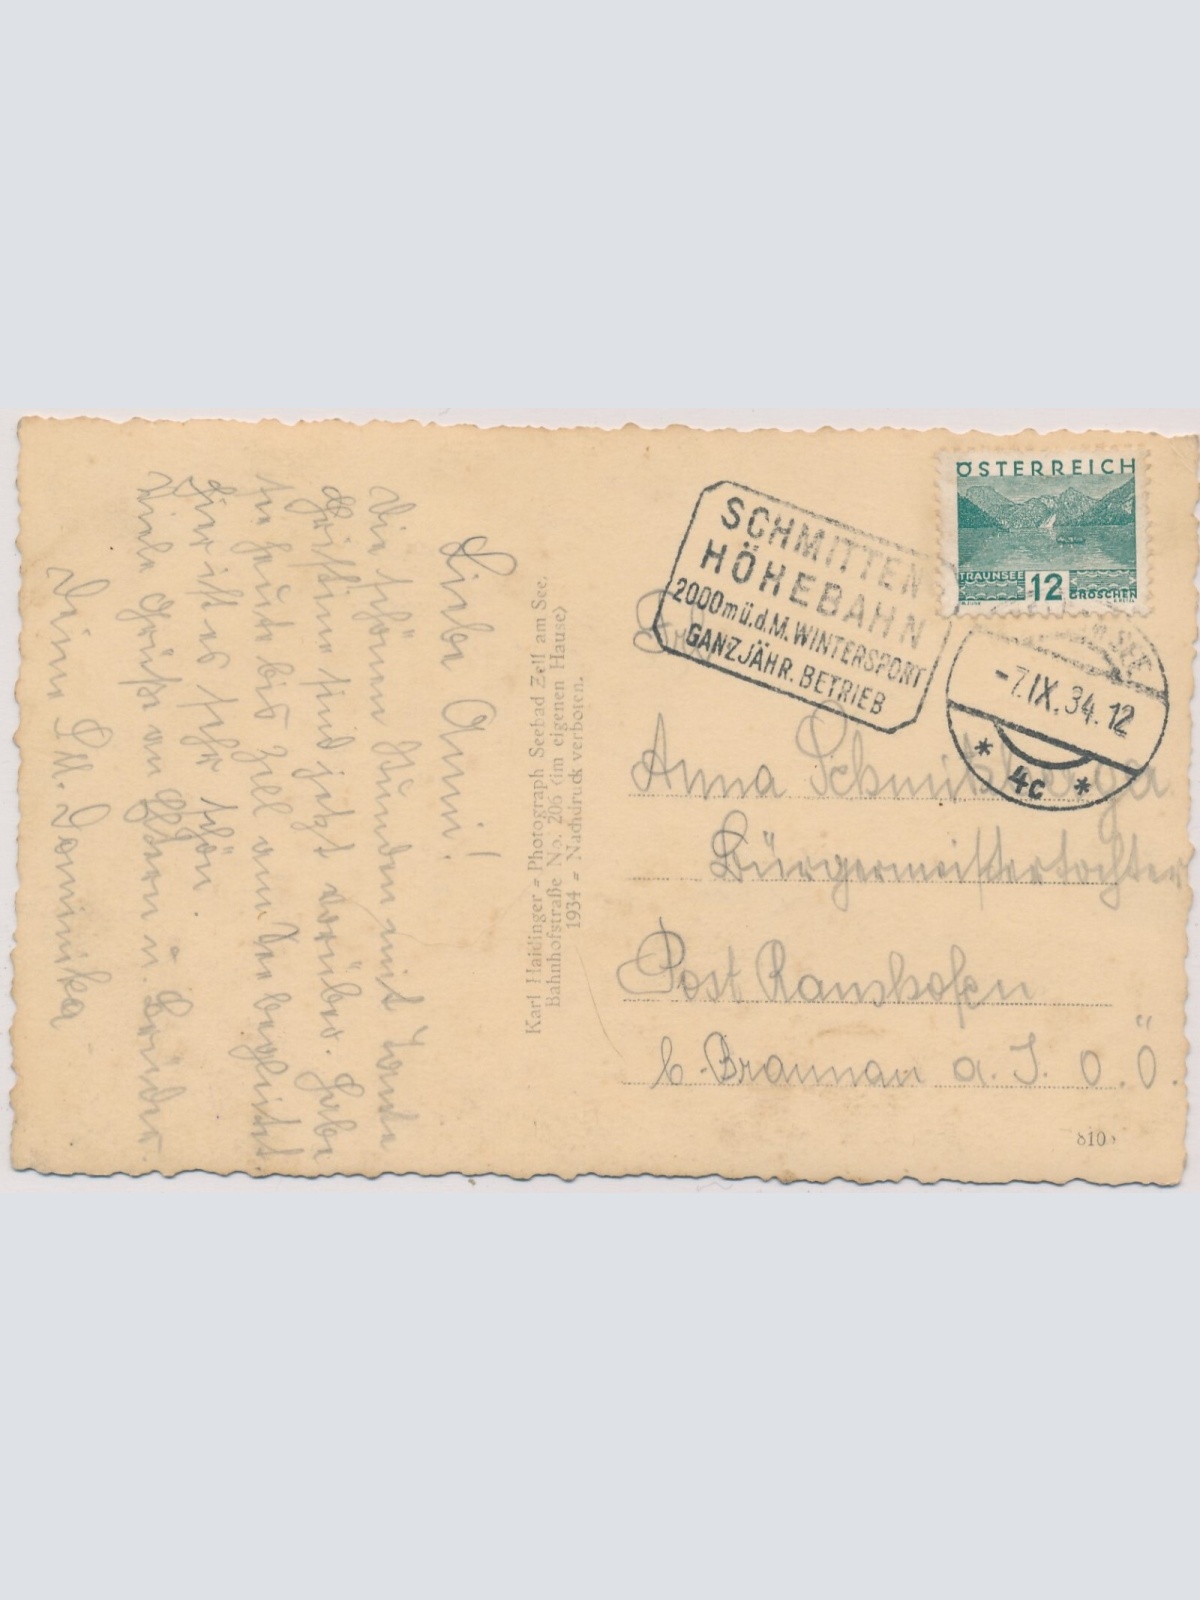 Liebe Anni!
Die schönen Stunden mit Tante
Christine sind jetzt vorüber. Habe
sie heute bis Zell am See begleitet.
Hier ist es sehr schön
Viele Grüße an Eltern u. Brüder.
Deine Sr. M. Dominika
Karl Haidinger = Photograph Seebad Zell am See.
Bahnhofstraße No. 206 (im eigenen Hause)
1934 = Nachdruck verboten.
ÖSTERREICH
TRAUNSEE 12 GROSCHEN
SCHMITTEN
HÖHEBAHN
2000m ü.d.M. WINTERSPORT
GANZJÄHR. BETRIEB
am SEE
-7.IX.34.12
* 4c *
Anna Schmitzberger
Bürgermeisterstochter
Post Ranshofen
b. Braunau a. I. O.Ö.
810